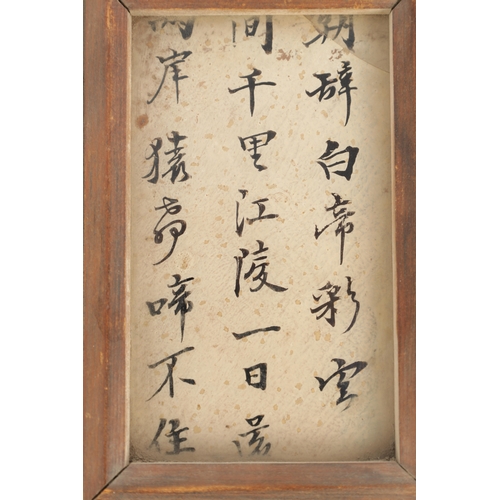 朝辭白帝彩雲
間千里江陵一日還
兩岸猿聲啼不住